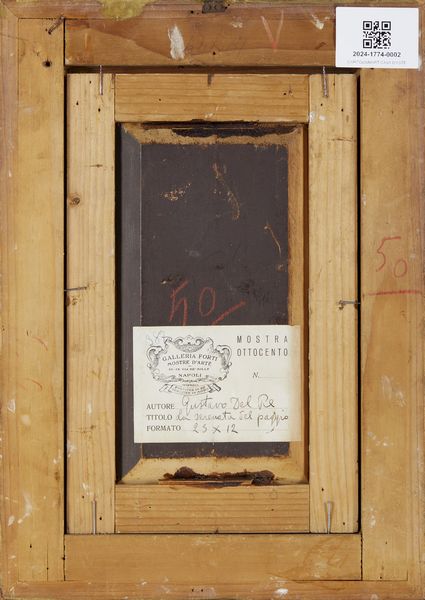 2024-1774-0002
50
50
MOSTRA
OTTOCENTO
GALLERIA FORTI
MOSTRE D'ARTE
NAPOLI
N.
AUTORE Gustavo Del Re
TITOLO La serenata del paggio
FORMATO 25 x 12